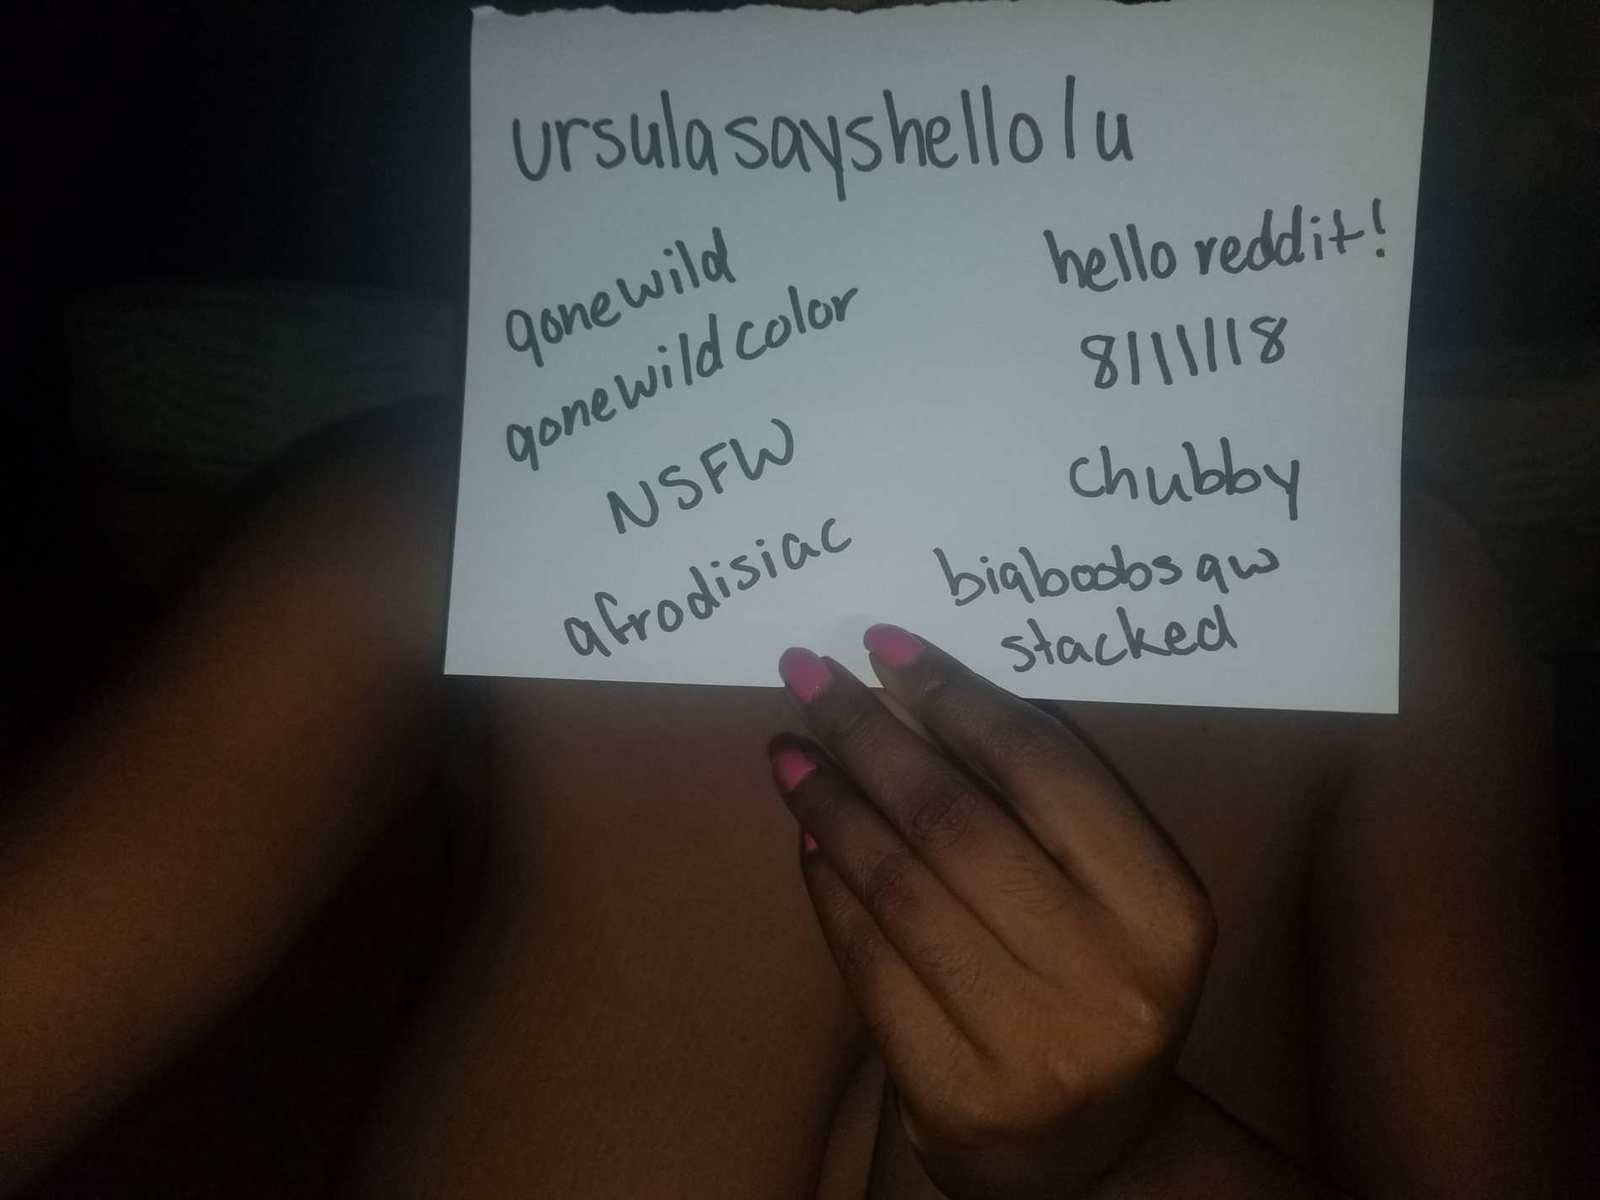 ursulasayshello/u
gonewild
gonewildcolor
NSFW
afrodisiac
hello reddit!
8/11/18
Chubby
bigboobsgw
stacked